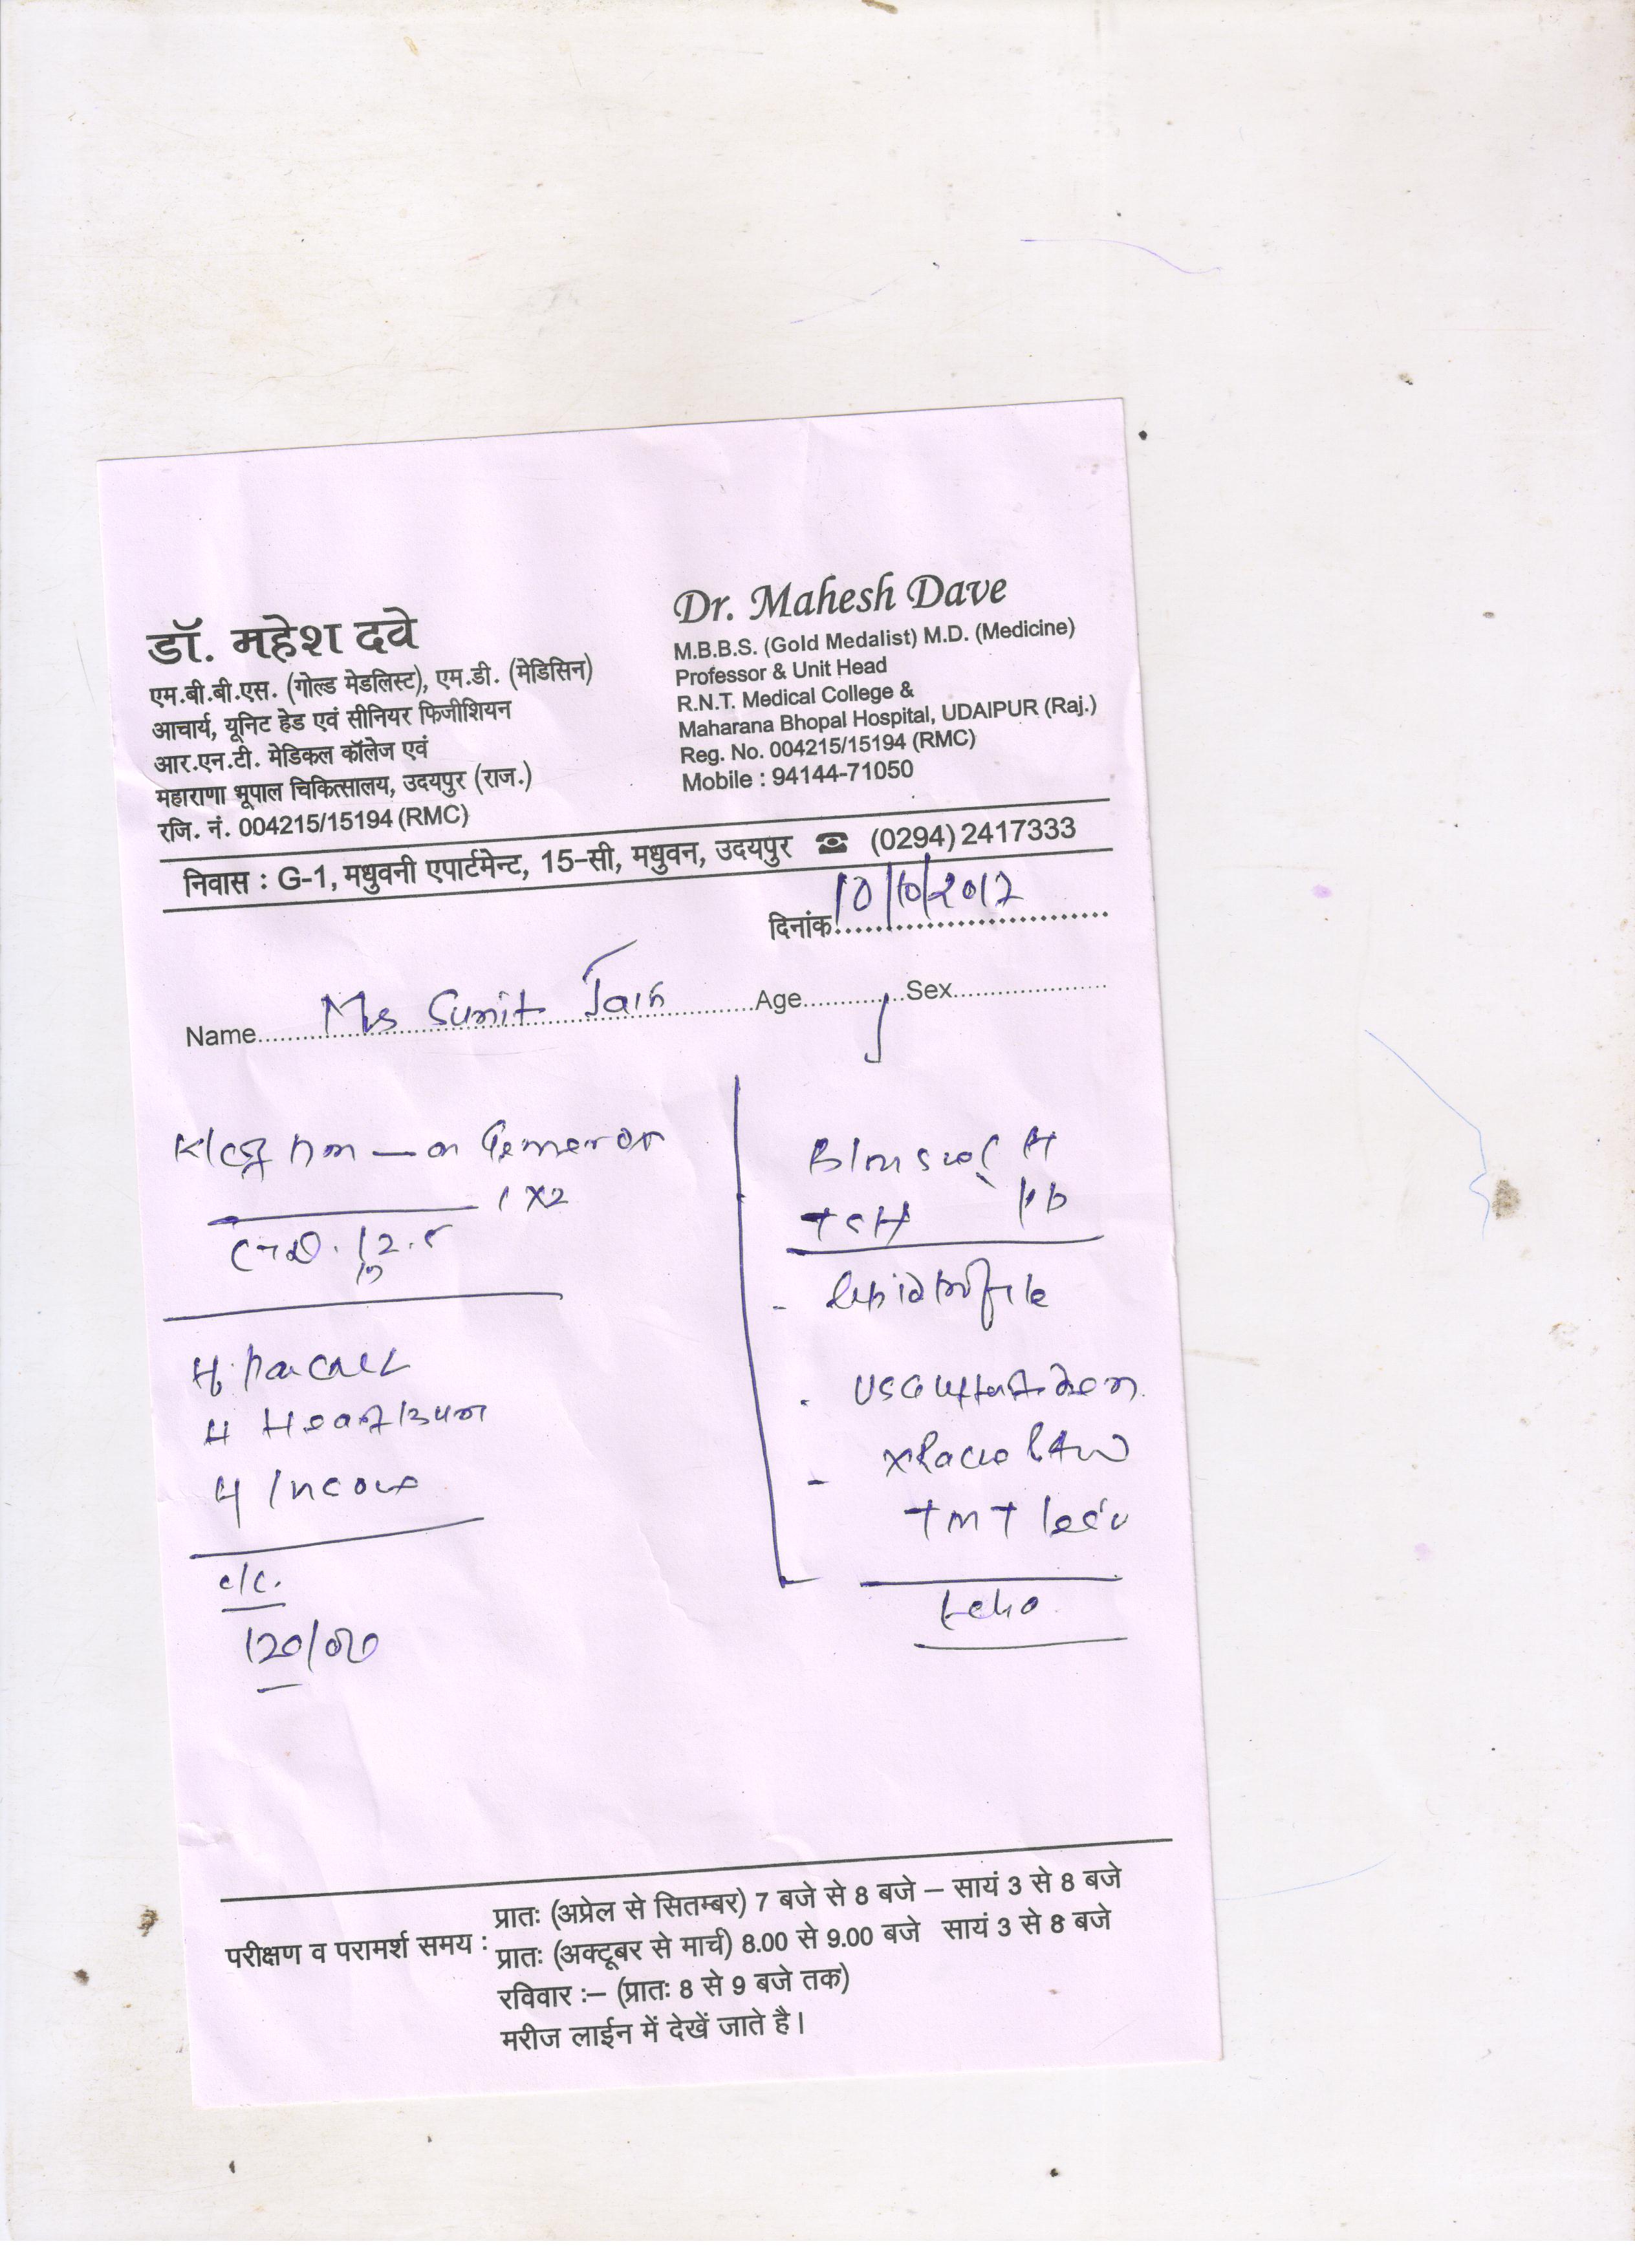 डॉ. महेश दवे
एम.बी.बी.एस. (गोल्ड मेडलिस्ट), एम.डी. (मेडिसिन)
आचार्य, यूनिट हेड एवं सीनियर फिजीशियन
आर.एन.टी. मेडिकल कॉलेज एवं
महाराणा भूपाल चिकित्सालय, उदयपुर (राज.)
रजि. नं. 004215/15194 (RMC)
Dr. Mahesh Dave
M.B.B.S. (Gold Medalist) M.D. (Medicine)
Professor & Unit Head
R.N.T. Medical College &
Maharana Bhopal Hospital, UDAIPUR (Raj.)
Reg. No. 004215/15194 (RMC)
Mobile : 94144-71050
निवास : G-1, मधुवनी एपार्टमेन्ट, 15-सी, मधुवन, उदयपुर ☎ (0294) 2417333
दिनांक 10/10/2017
Name Mrs Sunit Jain Age Sex
on
1 X2
12.5
H
H Heart Burn
H
c/c.
120/80
TSH
Lipid Profile
USG
TMT
Echo
परीक्षण व परामर्श समय : प्रातः (अप्रेल से सितम्बर) 7 बजे से 8 बजे – सायं 3 से 8 बजे
प्रातः (अक्टूबर से मार्च) 8.00 से 9.00 बजे सायं 3 से 8 बजे
रविवार :– (प्रातः 8 से 9 बजे तक)
मरीज लाईन में देखें जाते है।